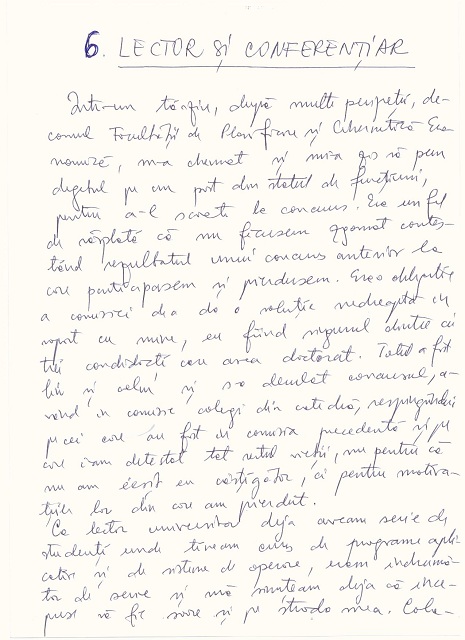 6. LECTOR ȘI CONFERENȚIAR
Într-un târziu, după multe peripeții, de-
canul Facultății de Planificare și Cibernetică Eco-
nomică, m-a chemat și mi-a zis să pun
degetul pe un post din statul de funcțiuni,
pentru a-l scoate la concurs. Era un fel
de răsplată că nu făcusem zgomot contes-
tând rezultatul unui concurs anterior la
care participasem și pierdusem. Era obligația
a comisiei de a da o soluție nedreaptă în
raport cu mine, eu fiind singurul dintre cei
trei candidați care avea doctorat. Totul a fost
lin și calm și s-a derulat concursul, a-
vând în comisie colegi din catedră, respingându-i
pe cei care au fost în comisia precedentă și pe
care i-am detestat tot restul vieții, nu pentru că
nu am ieșit eu câștigător, ci pentru motiva-
țiile lor din care am pierdut.
Ca lector universitar deja aveam serie de
studenți unde țineam curs de programe apli-
cative și de sisteme de operare, eram îndrumă-
tor de serie și mă simțeam deja că înce-
puse să fie soare și pe strada mea. Cola-